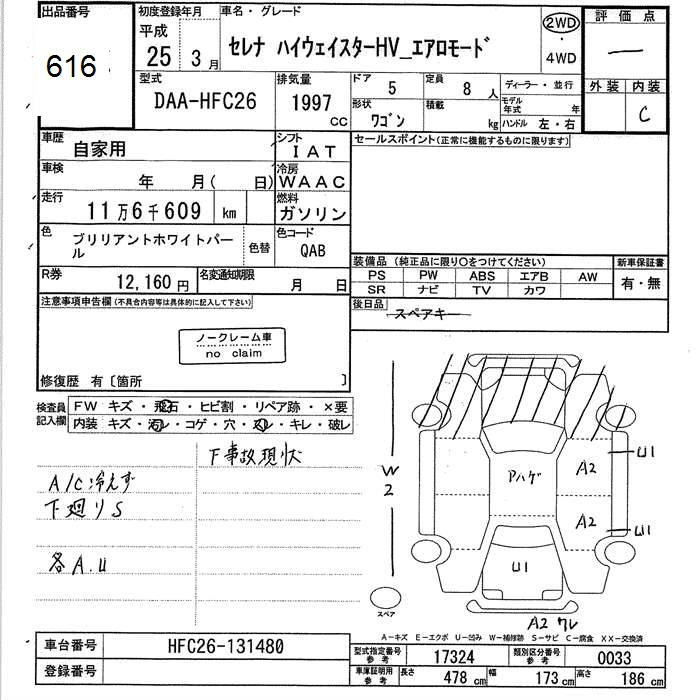 出品番号
616
初度登録年月
平成
25年 3月
車名・グレード
セレナ ハイウェイスターHV_エアロモード
2WD
・
4WD
評価点
―
外装 内装
C
型式
DAA-HFC26
排気量
1997
CC
ドア 5
定員 8人
形状
ワゴン
積載 kg
ディーラー・並行
モデル年式 年
ハンドル 左・右
車歴
自家用
シフト
IAT
車検
年 月( 日)
冷房
WAAC
走行
11万6千609 km
燃料
ガソリン
色
ブリリアントホワイトパール
色替
色コード
QAB
R券
12,160円
名変通知期限
月 日
セールスポイント(正常に機能するものに限ります)
装備品(純正品に限り○をつけてください)
PS PW ABS エアB AW
SR ナビ TV カワ
新車保証書
有・無
後日品
スペアキー
注意事項申告欄(不具合内容等は具体的に記入して下さい)
ノークレーム車
no claim
修復歴 有〔箇所 〕
検査員記入欄
FW キズ・飛石・ヒビ割・リペア跡・×要
内装 キズ・汚レ・コゲ・穴・スレ・キレ・破レ
下事故現状
A/C冷えず
下廻りS
各A.U
W2
Pハゲ
A2
U1
A2
U1
U1
スペア
A2 ワレ
A-キズ E-エクボ U-凹み W-補修跡 S-サビ C-腐食 XX-交換済
車台番号
HFC26-131480
登録番号
型式指定番号
参考
17324
類別区分番号
参考
0033
車庫証明用
参考
長さ 478cm
幅 173cm
高さ 186cm